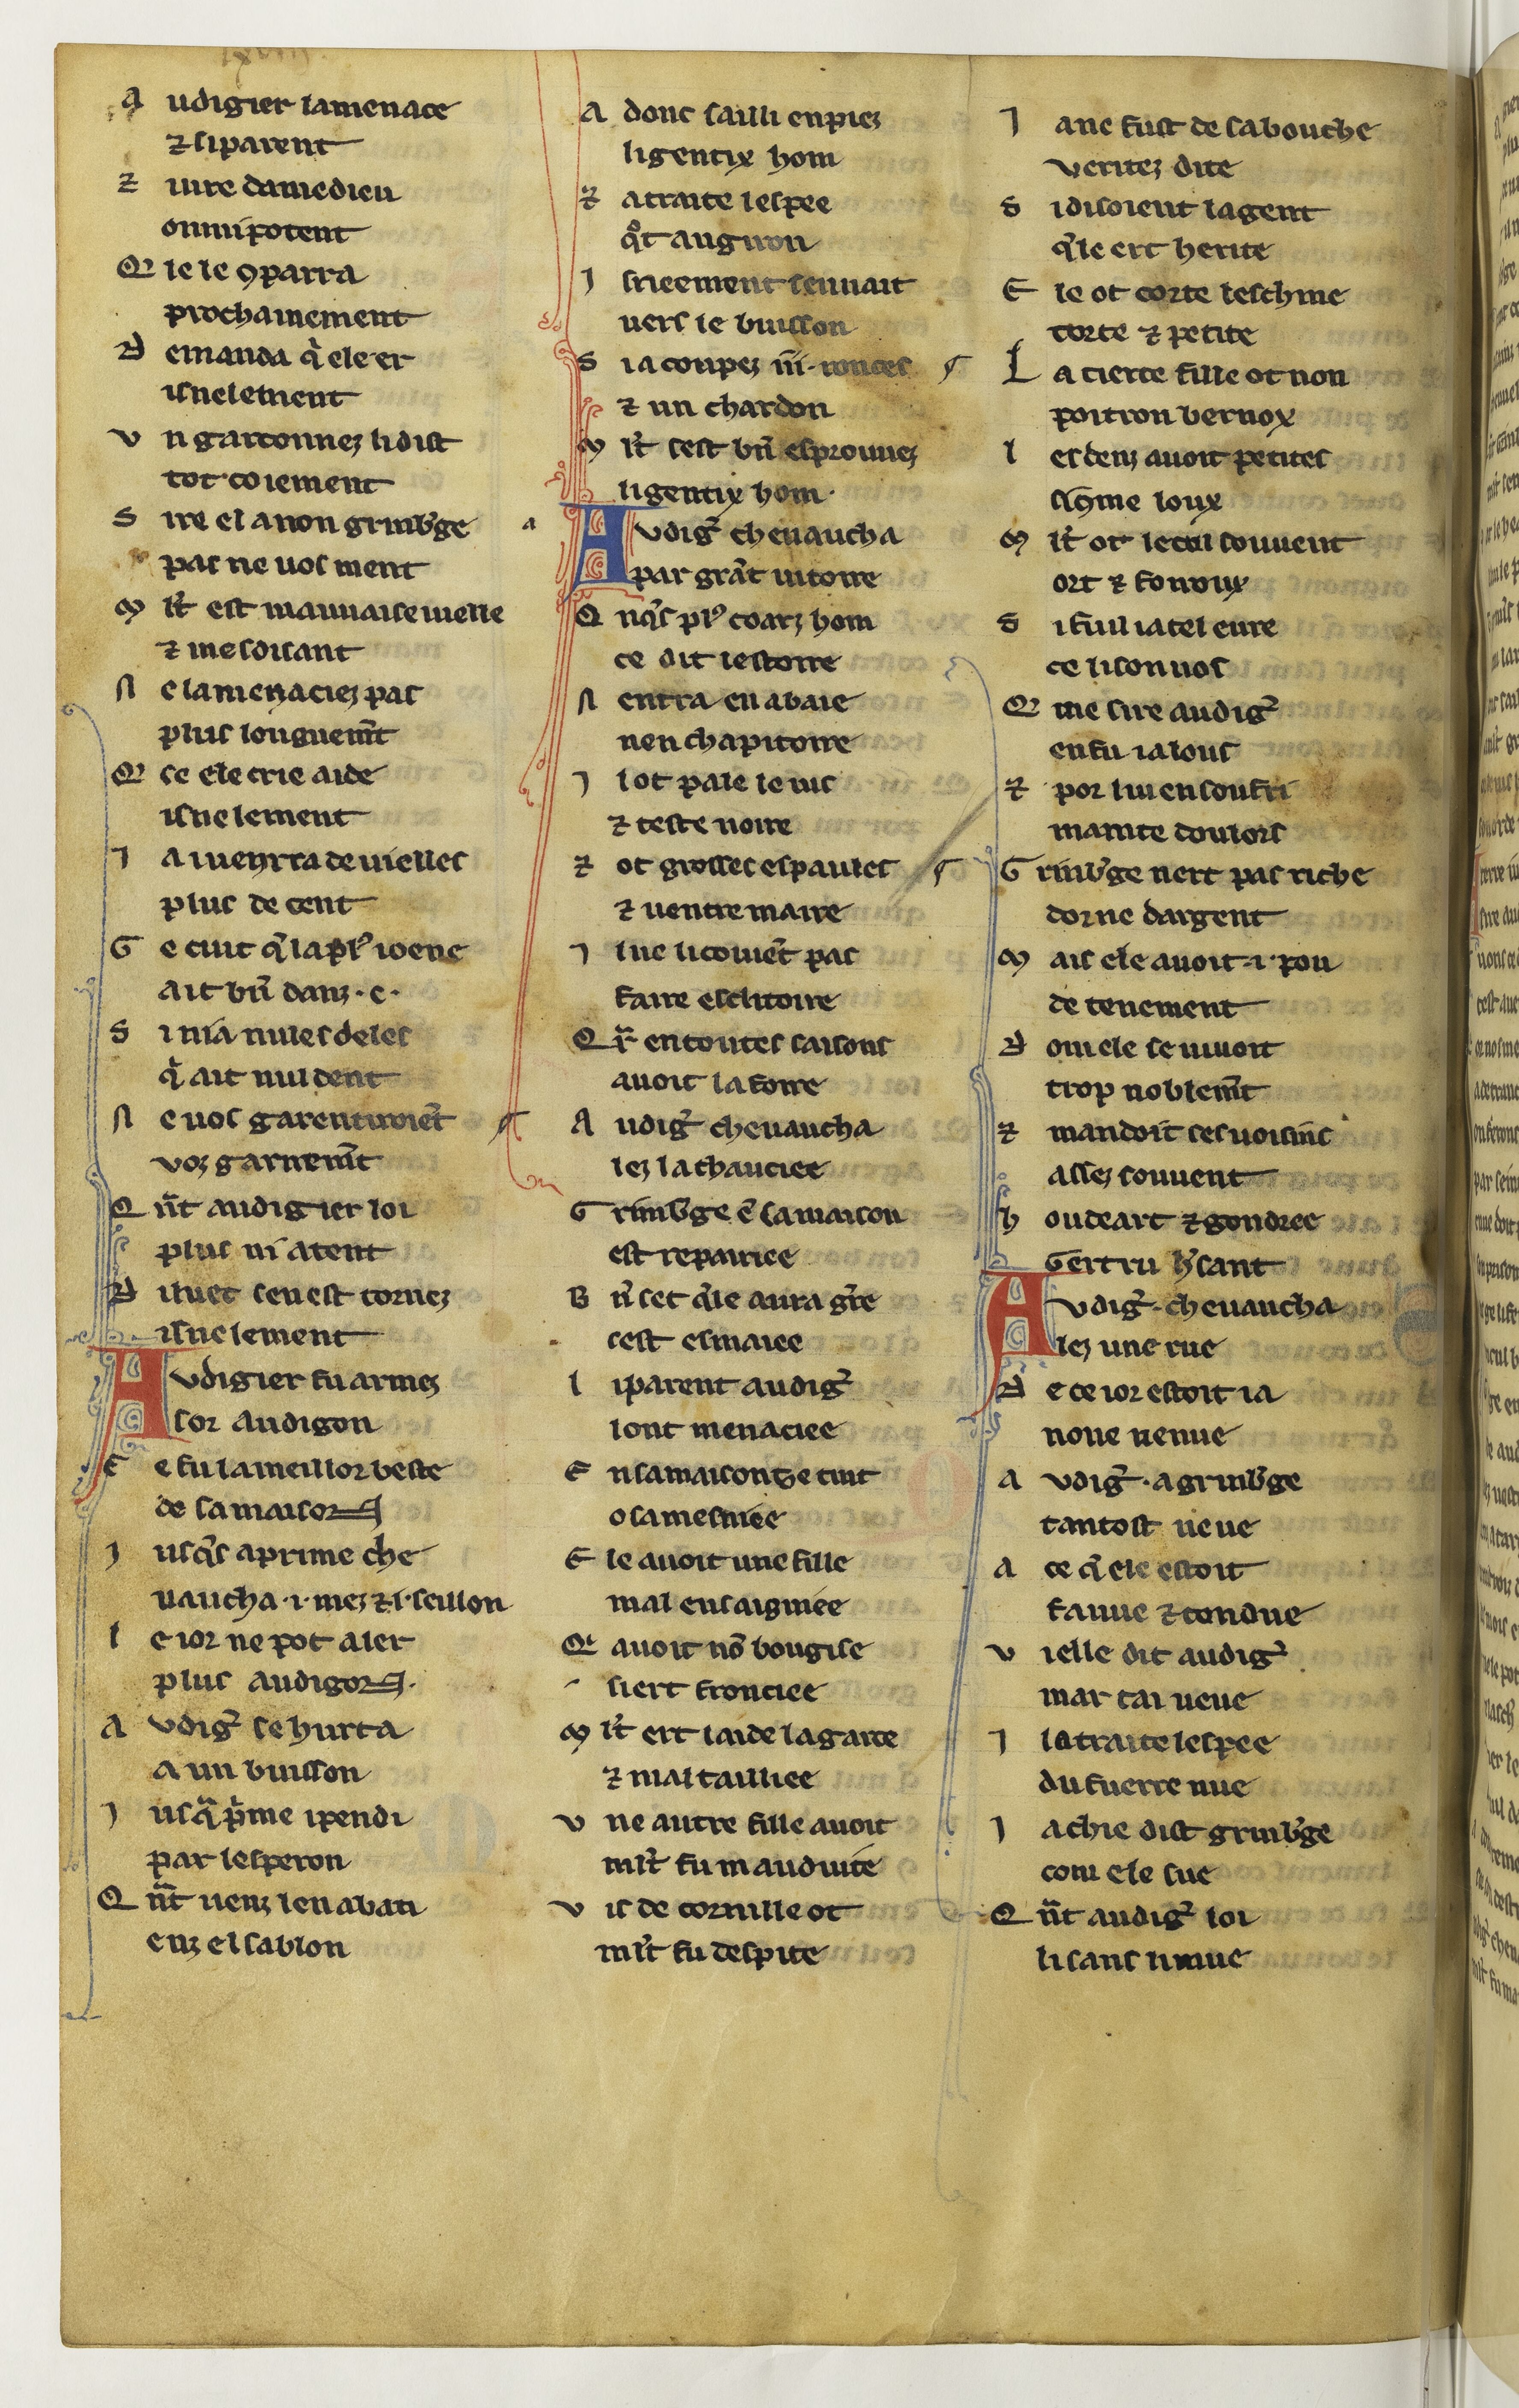 A udigier lamenace
⁊ si parent
⁊ iure damedieu
omnipotent
Q le le ꝯparra
prochainement
D emanda q̍ ele er
isnelement
V n garconnez li dist
tot coiement
S ire el a non grinb̾ge
pas ne uos ment
M lt̄ est mauuaise uielle
⁊ mesdisant
N e la menaciez pas
plus longuem̄t
Q se ele crie aide
isnelement
J a i uenrra de uielles
plus de cent
G e cuit q̍ la pl᷒ ioene
ait bn̄ danz .c.
S i nia nules deles
q̍ ait nul dent
N e uos garentiroiēt
voz garnem̄t
Q n̄t audigier loi
plus ni atent
D iluec sen est tornez
isnelement
A vdigier fu armez
sor audigon
C e fu la meillor beste
de sa maison
J usq̍s a prime che
uaucha .i. mez ⁊ .i. seillon
L e ior ne pot aler
plus audigon.
A vdig̾ se hurta
a un buisson
J usq̄ p̄me i pendi
par lesperon
Q n̄t uenz len abati
enz el sablon
A donc sailli en piez
li gentix hom
⁊ a traite lespee
q̊t augiron
J srieement sen uait
uers le buisson
S i a coupez .iii. ronces
⁊ un chardon
M lt̄ sest bn̄ esprouuez
li gentix hom.
a
A vdig̾ cheuaucha
par grāt uitoire
Q nq̍s pl᷒ coarz hom
ce dit lestoire
N entra en abaie
nen chapitoire
J l ot pale le uis
⁊ teste noire
⁊ ot grosses espaules
⁊ uentre maire
J l ne li couiēt pas
faire esclitoire
Q r̄ en toutes saisons
auoit la foire
A udig̾ cheuaucha
lez la chauciee
G rinb̾ge ē sa maison
est repairiee
B n̄ set q̍le aura g̾re
sest esmaiee
L i parent audig̾
lont menaciee
E n sa maison se tint
o sa mesniee
E le auoit une fille
mal ensaigniee
Q auoit nō bougise
siert fronciee
M lt̄ ert laide la garce
⁊ mal tailliee
V ne autre fille auoit
mlt̄ fu mauduite
V is de cornille ot
mlt̄ fu despite
J anc fust de sa bouche
veritez dite
S i disoient la gent
q̍le ert herite
E le ot corte leschine
torte ⁊ petite
L a tierce fille ot non
poitron bernox
L es denz auoit petites
ꝯme loux
M lt̄ ot le cul souuent
ort ⁊ foiroux
S i fu il ia tel eure
ce lison uos
Q me sire audig̾
en fu ialous
⁊ por lui en soufri
mainte doulors
G rinb̾ge nert pas riche
dor ne dargent
M ais ele auoit .i. pou
de tenement
D oui ele se uiuoit
trop noblem̄t
⁊ mandoit ses uoisins
assez souuent
H oudeart ⁊ gondree
Gertru h̾sant
A vdig̾. cheuaucha
lez une rue
D e ce ior estoit ia
none uenue
A vdig̾. a grinb̾ge
tantost ueue
A ce q̍ ele estoit
fauue ⁊ tondue
V ielle dit audig̾
mar tai ueue
J l a traite lespee
du fuerre nue
J a chie dist grinb̾ge
com ele sue
Q n̄t audig̾ loi
li sans li mue